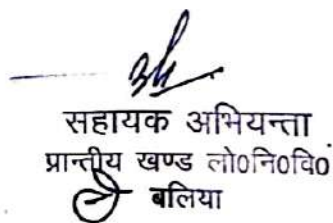 सहायक अभियन्ता
प्रान्तीय खण्ड लो०नि०वि०
बलिया